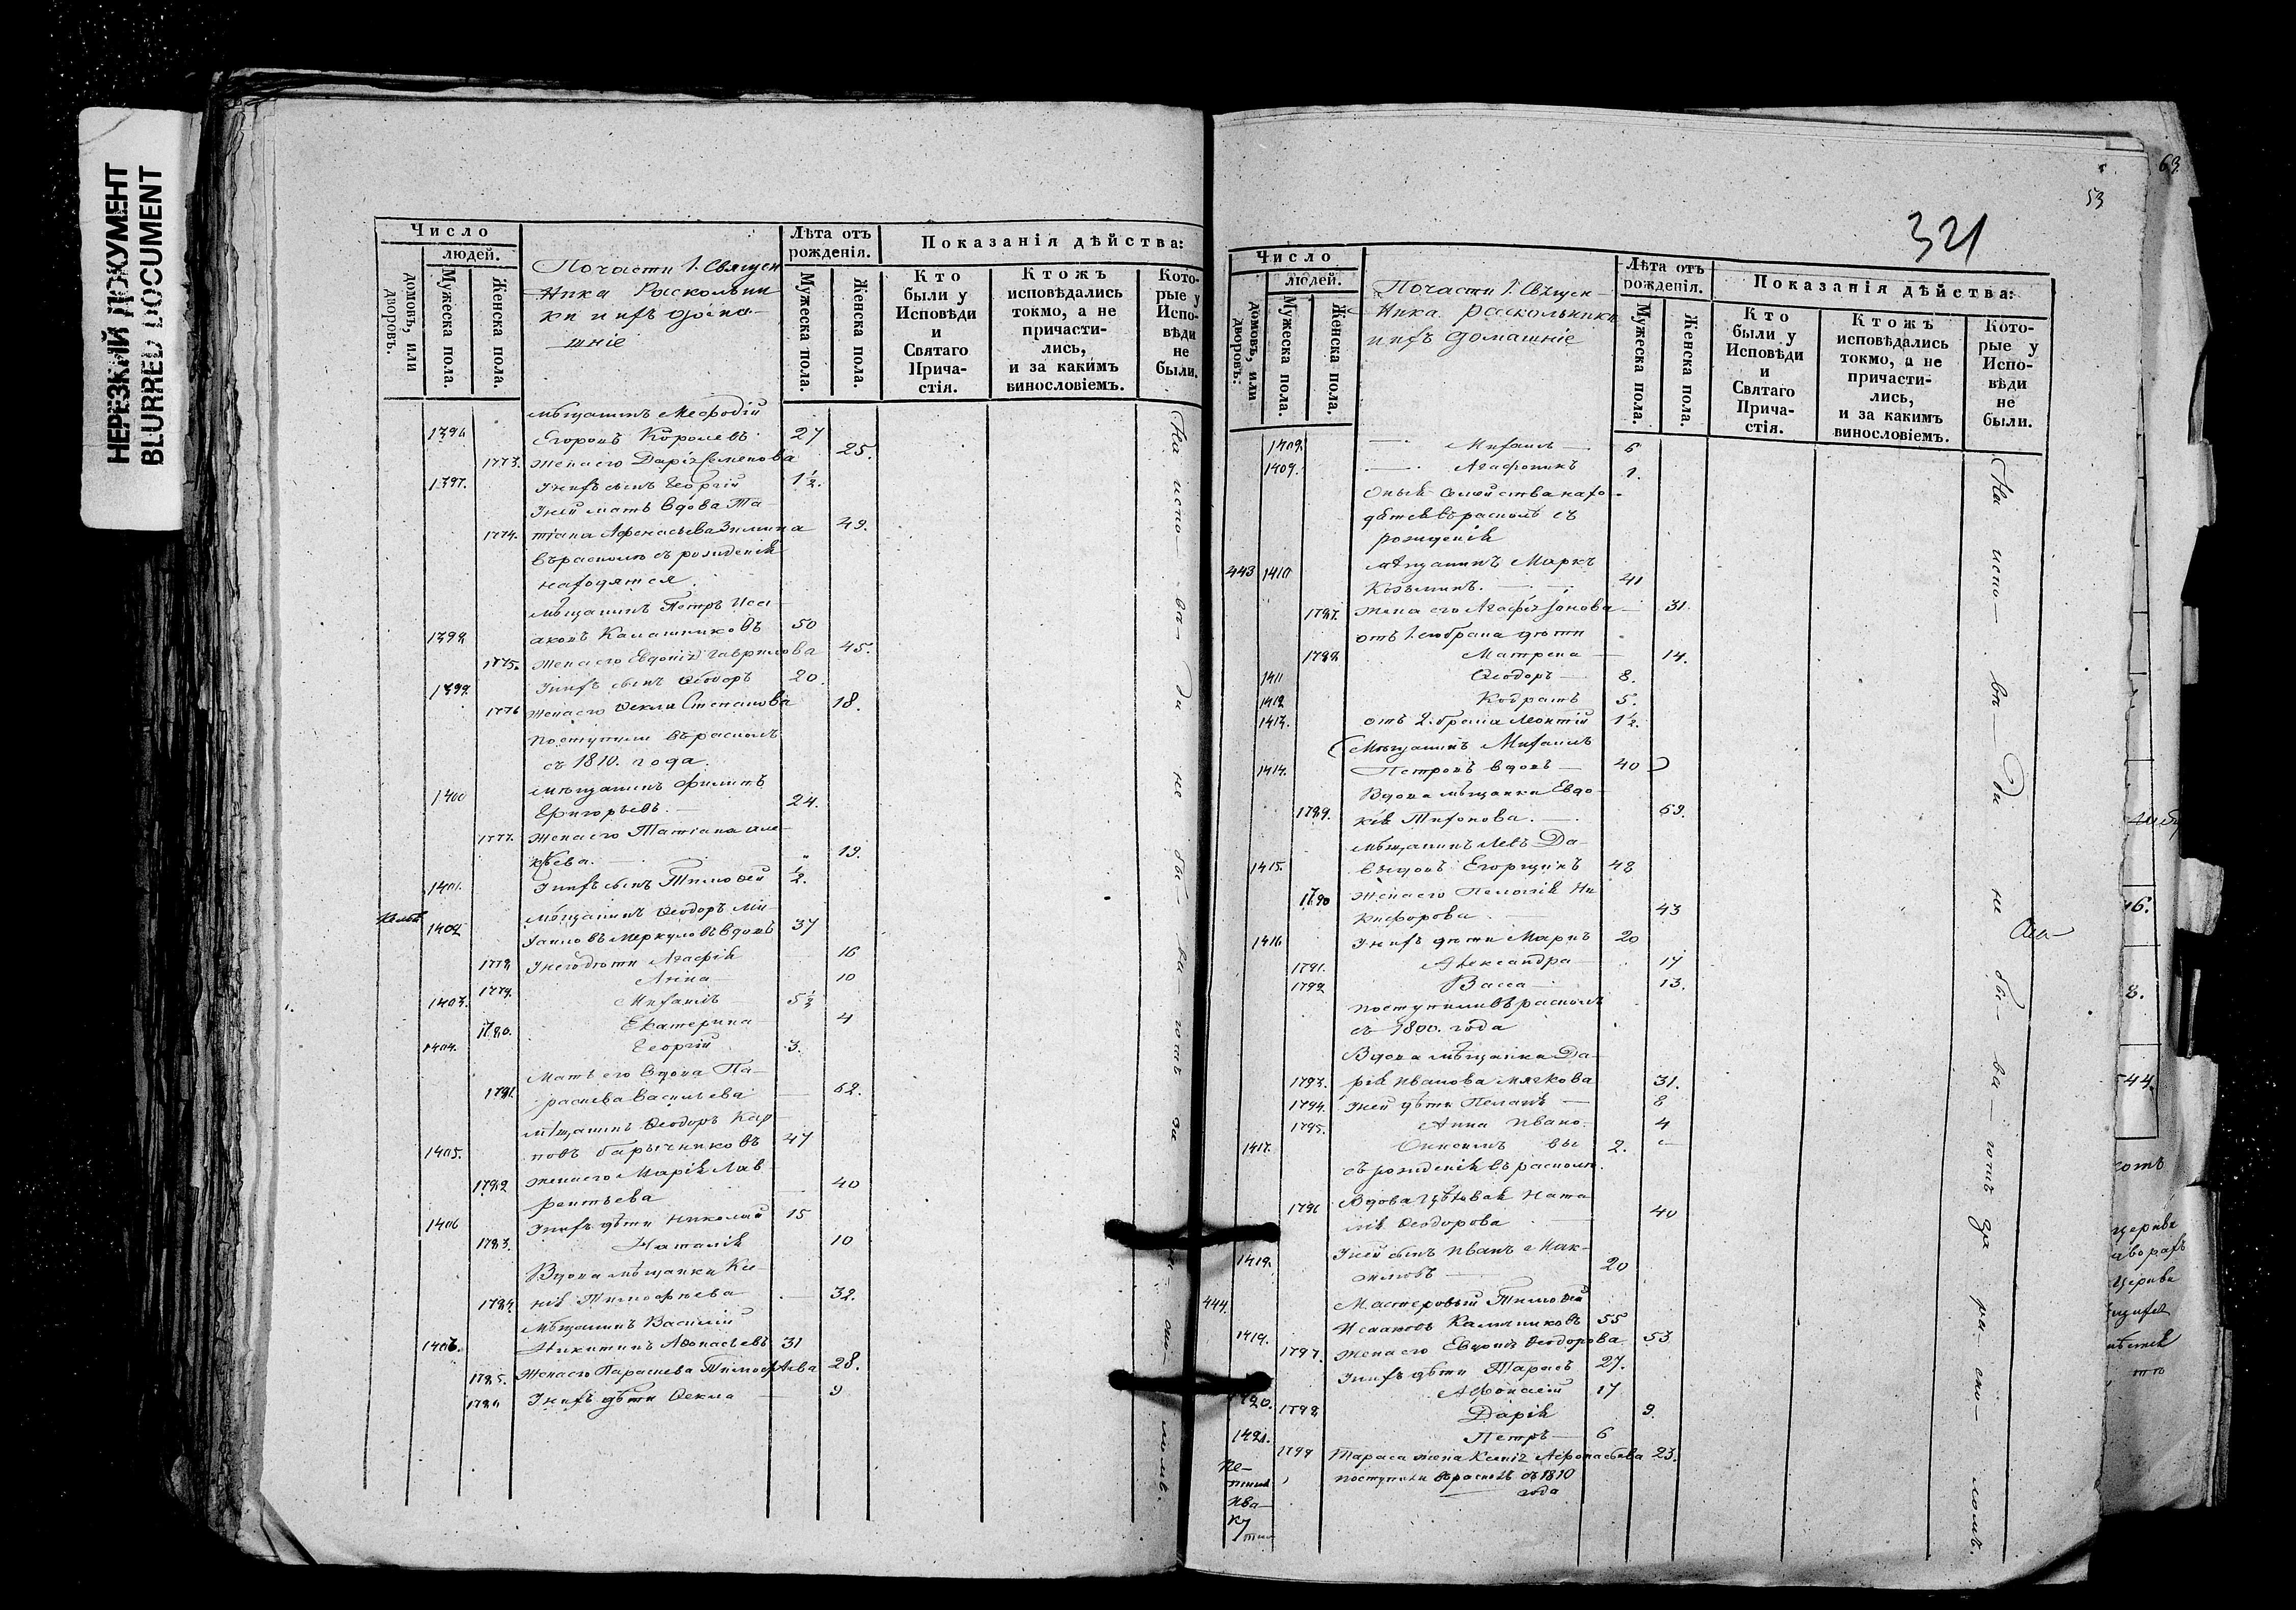 НЕРЕЗКИЙ ДОКУМЕНТ
BLURRED DOCUMENT
Число
людей.
домовъ, или дворовъ.
Мужеска пола.
Женска пола.
По части 1. Священ
ника Раскольни
ки и ихъ дома-
шніе
Лѣта отъ рожденія.
Мужеска пола.
Женска пола.
Показанія дѣйства:
Кто были у Исповѣди и Святаго Прича-стія.
Ктожъ исповѣдались токмо, а не причасти-лись, и за какимъ винословіемъ.
Кото-рые у Испо-вѣди не были.
мѣщанинъ Меѳодій
1396 Егоровъ Королевъ 27
1773. жена его Дарія Семенова 25.
1397. У нихъ сынъ Георгій 1½.
У ней мать вдова Та
1774. тіана Афонасьева Зимина 49.
въ расколѣ съ рожденія
находятся.
мѣщанинъ Петръ Иса-
1398 аковъ Калашниковъ 50
1775. жена его Евдокія Гаврилова 45.
1399. У нихъ сынъ Ѳеодоръ 20
1776 жена его Ѳекла Степанова 18.
поступили въ расколъ
съ 1810. года.
1400 мѣщанинъ Филипъ
Григорьевъ. 24.
1777. жена его Татіана Але-
ксѣева. 19.
1401. У нихъ сынъ Тимоѳей ½.
мѣщанинъ Ѳеодоръ Ми-
1402 хаиловъ Меркуловъ вдовъ 37
1778 У него дѣти Агафія 16
1779. Анна 10
1403. Михаилъ 5½
1780. Екатерина 4
1404. Георгій 3.
Мать его вдова Па-
1781. расковья Васильева 62.
мѣщанинъ Ѳеодоръ Кар
1405. повъ Барычниковъ 47
1782 жена его Марія Лав
рентьева 40
1406 У нихъ дѣти Николай 15
1783. Наталія 10
Вдова мѣщанка Ксе-
1784 нія Тимофѣева 32.
мѣщанинъ Василій
1406. Никитинъ Афонасьевъ 31
1785. жена его Парасковья Тимофѣева 28.
1786 У нихъ дѣти Ѳекла 9
На испо-вѣ-ди не бы-ва-ютъ за рас-ко-ломъ.
63
53
321
Число
людей.
домовъ, или дворовъ:
Мужеска пола.
Женска пола.
По части 1. Священ-
ника раскольники
и ихъ домашніе
Лѣта отъ рожденія.
Мужеска пола.
Женска пола.
Показанія дѣйства:
Кто были у Исповѣди и Святаго Прича-стія.
Ктожъ исповѣдались токмо, а не причасти-лись, и за какимъ винословіемъ.
Кото-рые у Испо-вѣди не были.
1409. Михаилъ 6
1409. Агафоникъ 1.
Оныя семейства нахо-
дятся въ расколѣ съ
рожденія
443 1410 мѣщанинъ Маркъ
Козьминъ. 41
1787. жена его Агафія Іонова 31.
отъ 1. го брака дѣти
1788 Матрена 14.
1411 Ѳеодоръ 8.
1412 Кодратъ 5.
1413. отъ 2. брака Леонтій 1½.
(Мѣщанинъ Михаилъ
1414. Петровъ вдовъ 40)
Вдова мѣщанка Евдо-
1789. кія Тихонова. 69.
мѣщанинъ Левъ Да-
1415. выдовъ Егорщинъ 48
1790 жена его Пелагія Ни
кифорова 43
1416 У нихъ дѣти Маркъ 20
1791. Александра 17
1792 Васса 13.
поступили въ расколъ
съ 1800. года
Вдова мѣщанка Да-
1793. рія Иванова Мягкова 31.
1794. У ней дѣти Пелагія 8
1795. Анна Ивано- 4
1417. Онисимъ вы 2.
съ рожденія въ расколѣ.
1796 Вдова Цѣховая Ната
лія Ѳеодорова 40
1418. У ней сынъ Иванъ Мак-
симовъ 20
444. Мастеровый Тимоѳей
1419. Исааковъ Калашниковъ 55
1797. жена его Евдокія Ѳеодорова 53
У нихъ дѣти Тарасъ 27.
1420. Афонасій 17
1798 Дарія 9.
1421. Петръ 6
1799 Тараса жена Ксенія Афонасьева 23.
поступили въ расколъ съ 1810
года
На испо-вѣ-ди не бы-ва-ютъ за рас-ко-ломъ.
16.
8.
544.